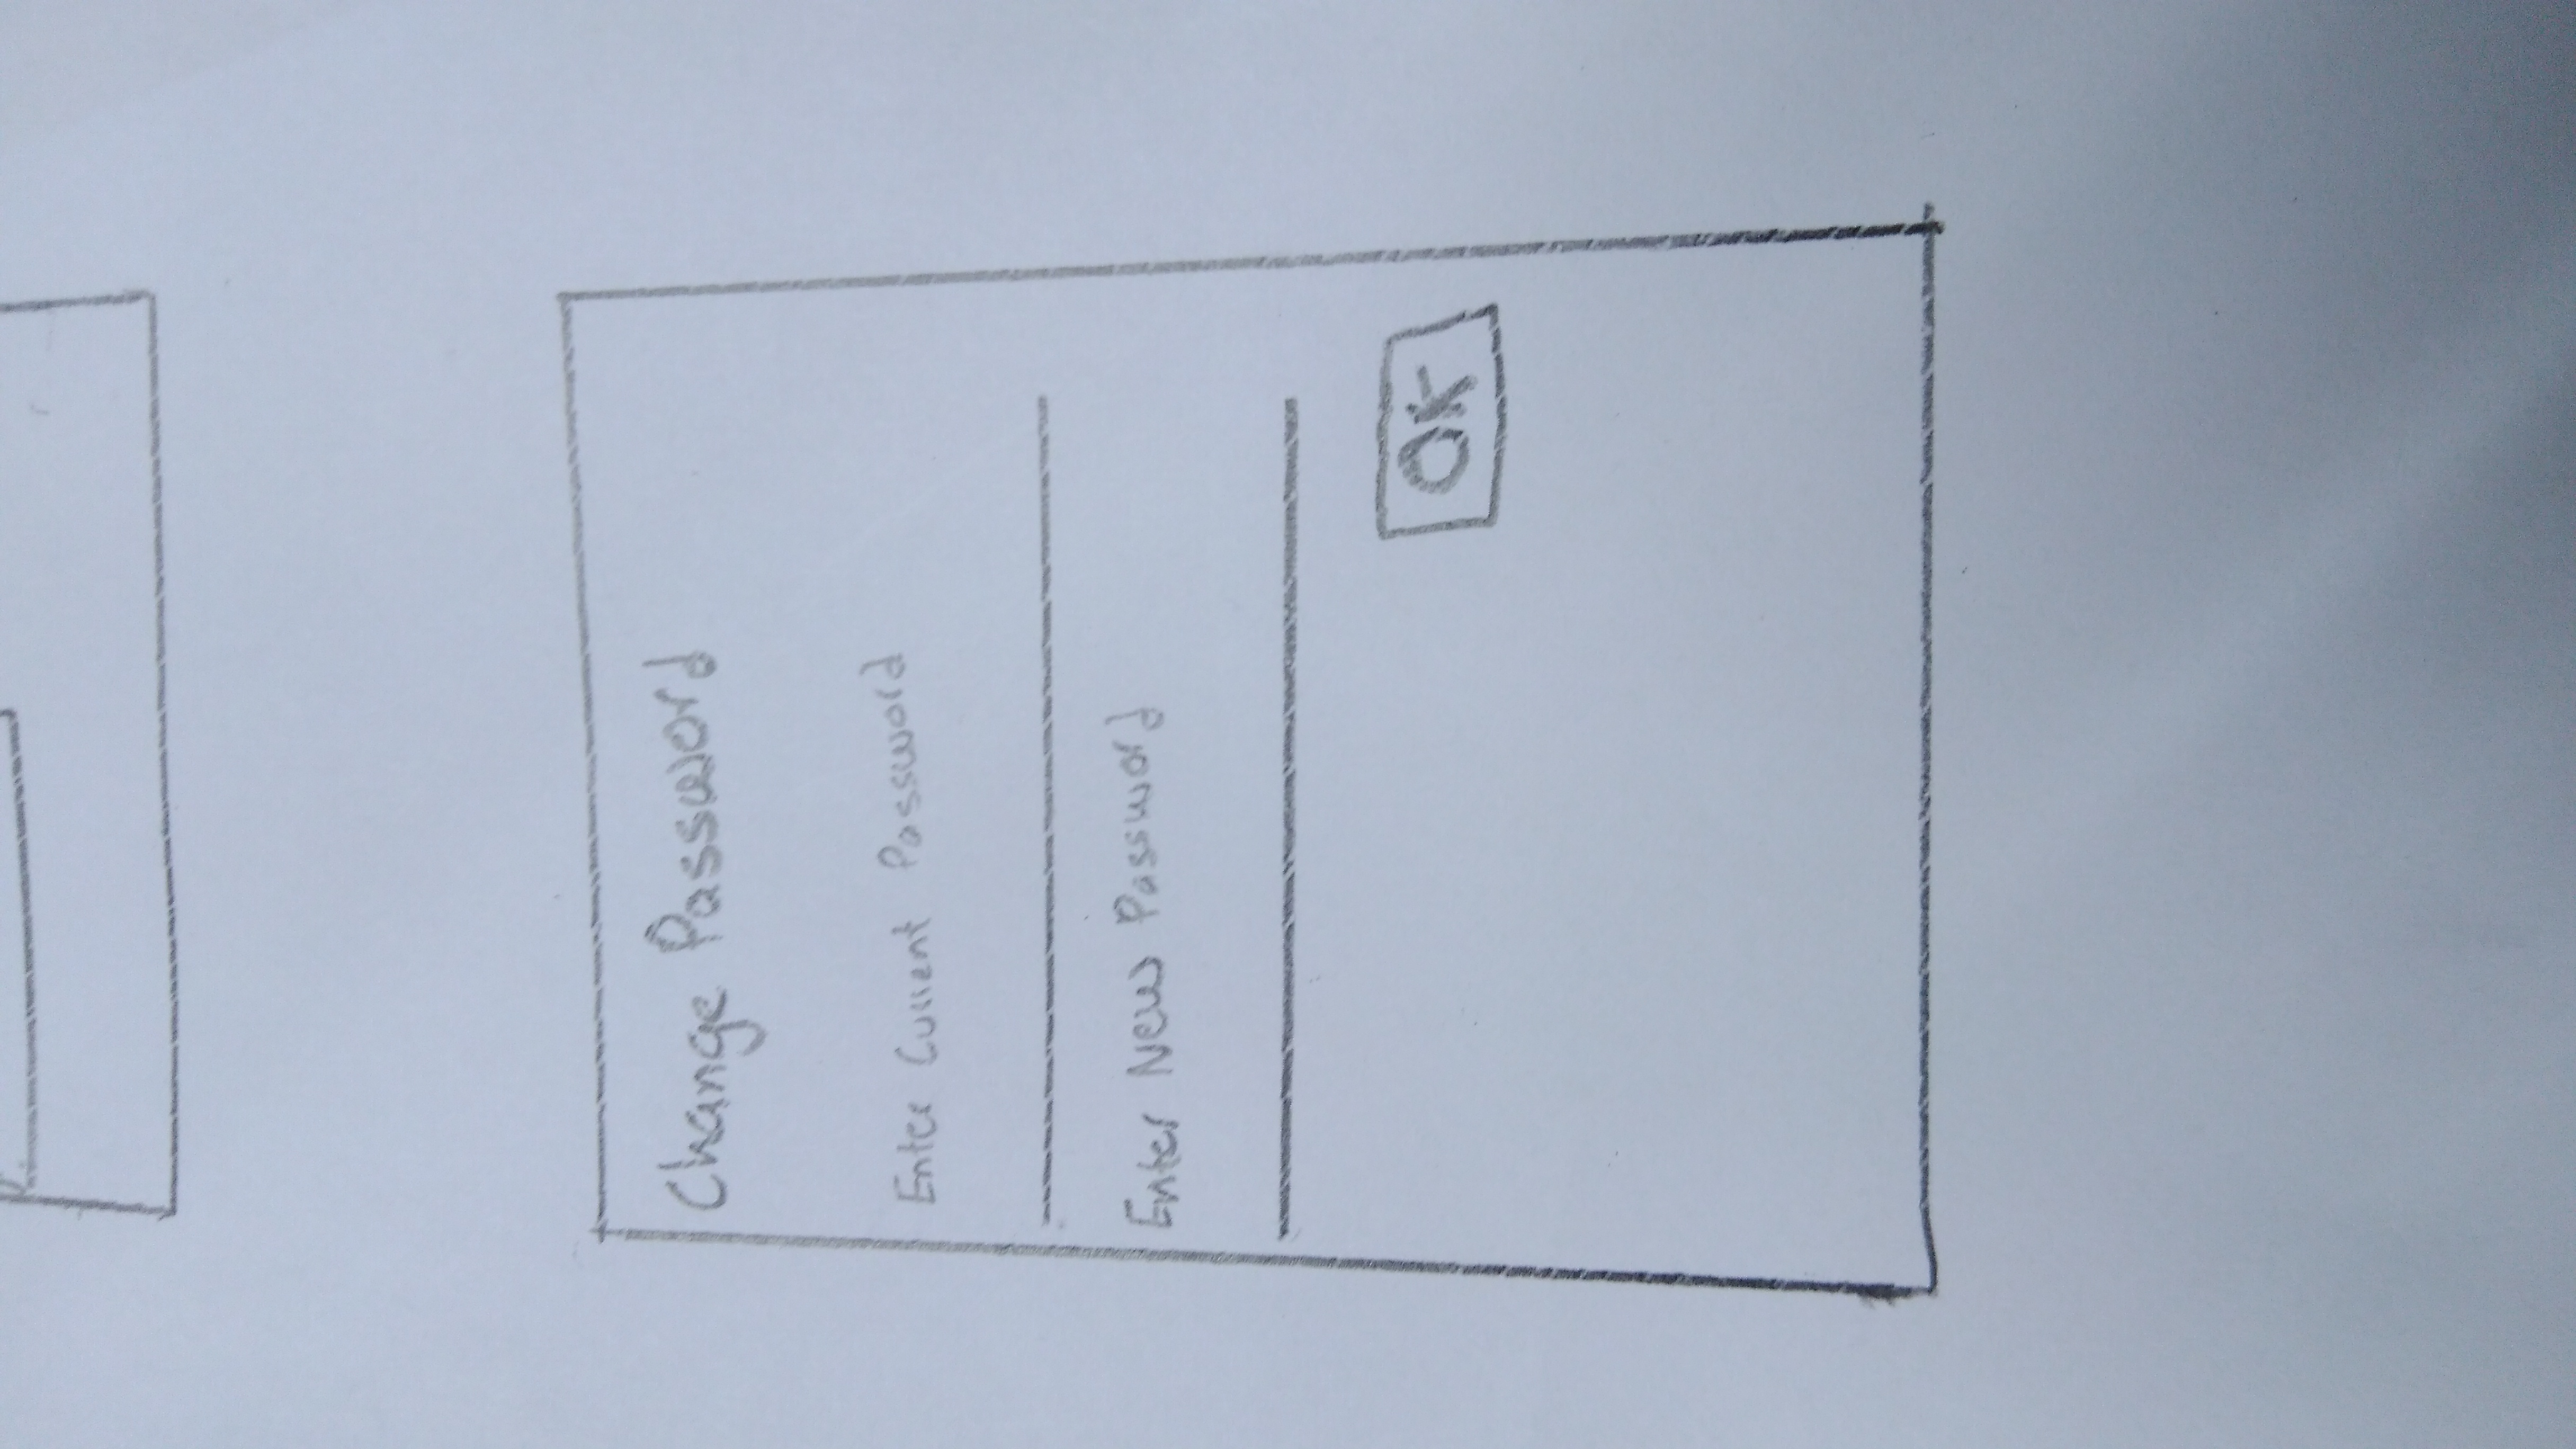 Change Password
Enter Current Password
Enter New Password
OK